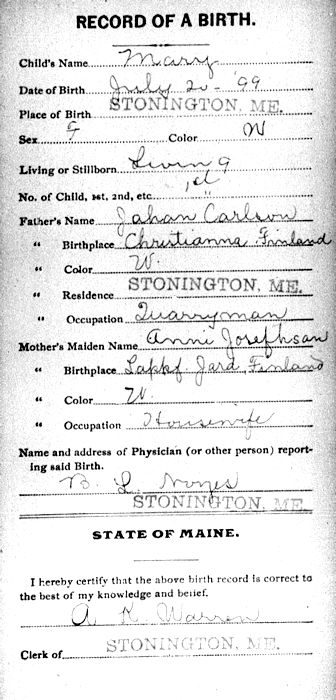 RECORD OF A BIRTH.
Child's Name Mary
Date of Birth July 20 - '99
Place of Birth STONINGTON, ME.
Sex Color W
Living or Stillborn Living
No. of Child, 1st, 2nd, etc. 1st
Father's Name Johan Carlson
" Birthplace Christianna Finland
" Color W.
" Residence STONINGTON, ME.
" Occupation Quarryman
Mother's Maiden Name Anni Josephson
" Birthplace Lappf Jard, Finland
" Color W.
" Occupation Housewife
Name and address of Physician (or other person) report-
ing said Birth.
B. L. Noyes
STONINGTON, ME.
STATE OF MAINE.
I hereby certify that the above birth record is correct to
the best of my knowledge and belief.
A K Warren
Clerk of STONINGTON, ME.